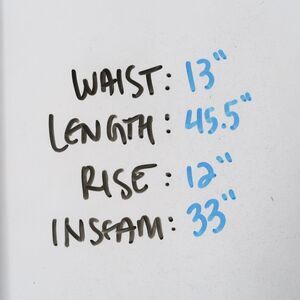 WAIST: 13"
LENGTH: 45.5"
RISE: 12"
INSEAM: 33"